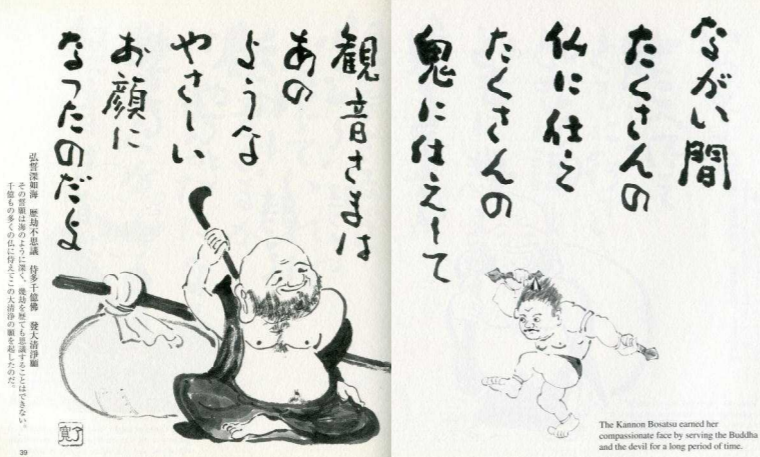 ながい間
たくさんの
仏に仕え
たくさんの
鬼に仕えして
観音さまは
あの
ような
やさしい
お顔に
なったのだよ
弘誓深如海　歴劫不思議　侍多千億佛　發大清淨願
その誓願は海のように深く、幾劫を歴ても思議することはできない。
千億もの多くの仏に侍えてこの大清浄の願を起したのだ。
The Kannon Bosatsu earned her
compassionate face by serving the Buddha
and the devil for a long period of time.
39